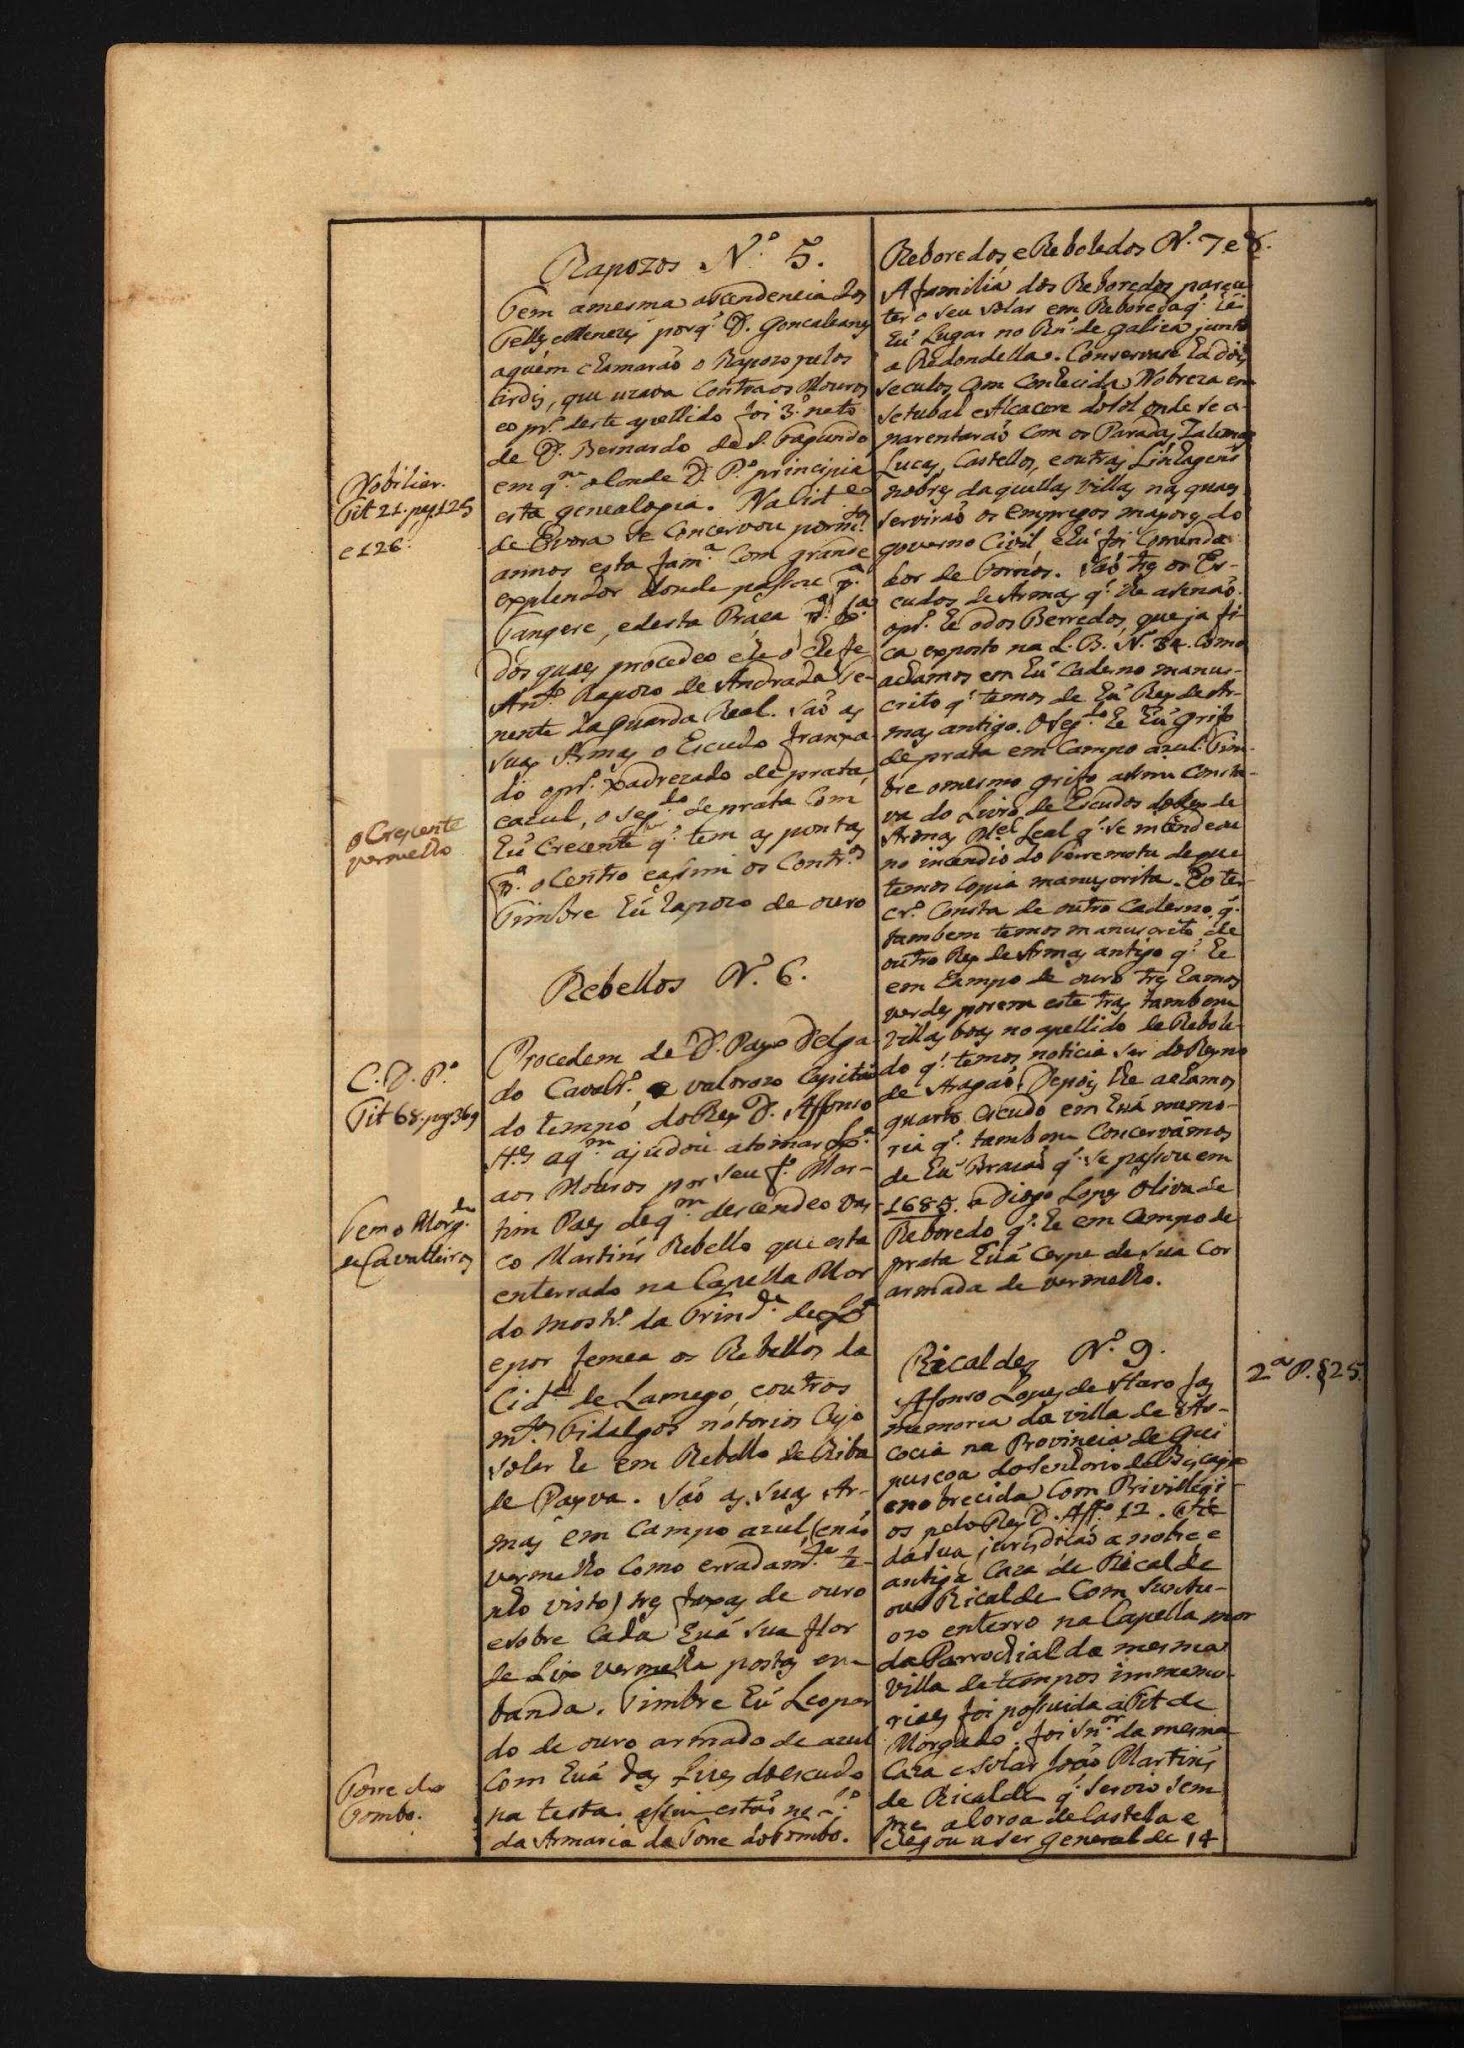 Rapozos N.º 5.
Tem a mesma ascendencia dos
Tellez e Menezes porq.' D. Goncaleanes
aquém chamarão o Rapozo pelos
ardis, que uzava Contra os Mouros
eo pr.º deste apellido foi 3.º neto
de D. Bernardo de S. Fagundo
em q.m o Conde D. P.º principia
esta genealogia. Na Cid.e
de Evora se Concervou por m.tos
annos esta fam.a Com grande
explendor donde passou p.a
Tangere, e desta Praça p.a Lx.a
dos quaes procedeo
Ant.º Rapozo de Andrada Te-
nente da guarda Real. São as
suas Armas o Escudo franxa
do o pr.º xadrezado de prata,
e azul, o seg.do de prata Com
hũ Crecente q.' tem as pontas
p.a o Centro e assim os Contr.os
Timbre hũ Rapozo de ouro
Nobiliar.
Tit 21. pag 125
e 126.
o Crescente
vermelho
Rebellos N.º 6.
Procedem de D. Payo Delga
do Cavalr.º e valorozo Capitão
do tempo do Rey D. Affonso
H.es a q.m ajudou a tomar Lx.a
aos Mouros por seu f.º Mar-
tim Paes de q.m descendeo Vas
co Martins Rebello que esta
enterrado na Capella Mor
do Mostr.º da Trind.e de Lx.a
e por femea os Rebellos da
Cid.e de Lamego, e outros
m.tos Fidalgos notorios Cujo
solar he em Rebello de Riba
de Payva. São as suas Ar-
mas em Campo azul (e não
vermelho como erradam.te te-
nho visto) tres faxas de ouro
e sobre Cada huã sua flor
de Lix vermelha postas em
banda. Timbre hũ Leopar
do de ouro armado de azul
Com huã das Lizes do escudo
na testa assim estão no
da Armaria da Torre do Tombo.
C. D. P.º
Tit 68. pag 369
Tem o Morg.do
de Cavalleiros
Torre do
Tombo.
Reboredos e Reboledos N.º 7 e 8.
A familia dos Reboredos parece
ter o seu solar em Reboreda q.' he
hũ Lugar no Rn.º de galiza junto
a Redondella. Conservase ha dois
seculos Com Conhecida Nobreza em
setubal e Alcacere do Sol onde se a-
parentarão Com os Paradas, Zalemas
Lucas, Castellos, e outras Linhagens
nobres daquellas villas nas quaes
servirão os empregos mayores do
governo Civil e hũ foi Comenda
dor de São tres os Es-
cudos de Armas q.' lhe asenão.
o pr.º he o dos Berredos, que ja fi
ca exposto na L. B. N.º 34. Como
achamos em hũ Caderno manus-
crito q.' temos de hũ Rey de Ar-
mas antigo. O seg.do he hũ grifo
de prata em Campo azul. Tim-
bre o mesmo grifo assim Consta-
va do Livro de Escudos do Rey de
Armas M.el Leal q.' se incendeou
no incendio do Terremoto de que
temos Copia manuscrita. Eo ter-
cr.º Consta de outro Caderno q.'
tambem temos manuscrito de
outro Rey de Armas antigo q.' he
em Campo de ouro tres Ramos
verdes porem este tras tambem
villas boas no apellido de Rebole-
do q.' temos noticia ser do Reyno
de Aragão. Depois lhe achamos
quarto escudo em huã memo-
ria q.' tambem Concervamos
de hũ Brazão q.' se passou em
1685. a Diogo Lopes Oliva de
Reboredo q.' he em Campo de
prata huã Cerpe de sua Cor
armada de vermelho.
Ricaldes N.º 9.
2.a P. §25.
Affonso Lopes de Haro fas
memoria da villa de As-
cocia na Provincia de Gui
puscoa do senhorio de Biscaya
enobrecida Com Privillegi-
os pelo Rey D. Aff.º 12. e he
da sua jurisdição a nobre e
antiga Caza de Recalde
ou Ricalde Com suntu-
ozo enterro na Capella mor
da Parrochial da mesma
villa de tempos immemo-
riaes foi possuida a Tit de
Morgado. foi Sn.or da mesma
Caza e solar João Martins
de Ricalde q.' servio sem
pre a Coroa de Castella e
chegou a ser general de 14